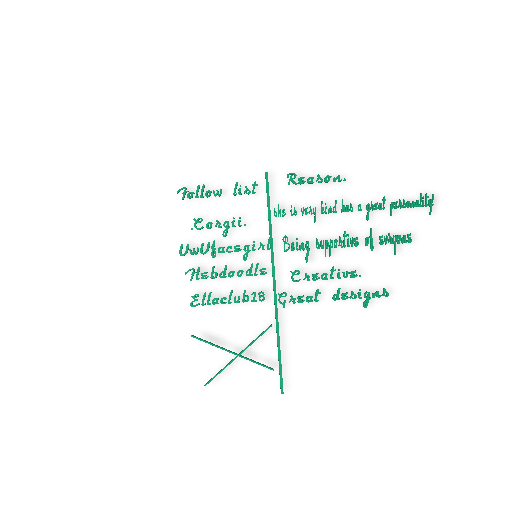 Follow list Reason.
.Corgii. She is very kind has a great personality!
UwUfacegirl Being supportive of everyone
Nebdoodle Creative.
Ellaclub28 Great designs